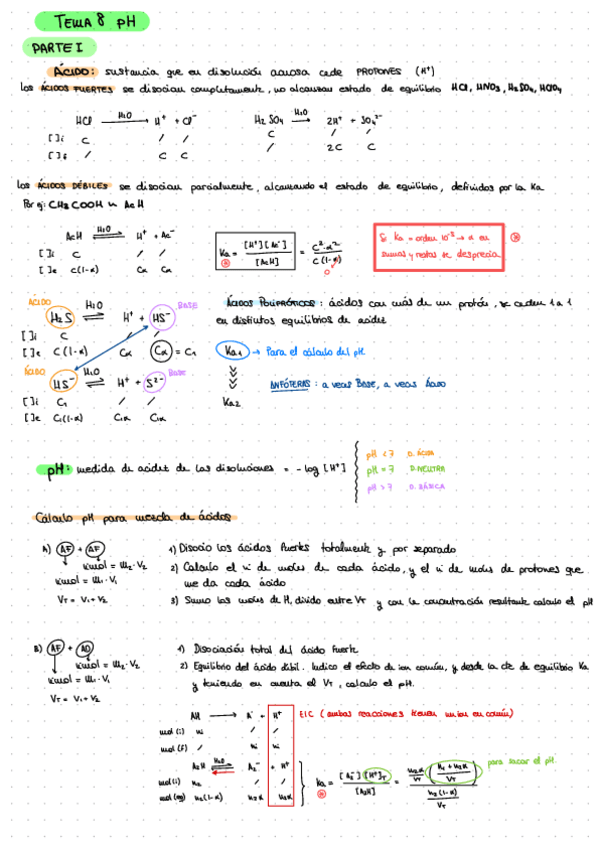 TEMA 8 pH
PARTE I
ÁCIDO: sustancia que en disolución acuosa cede PROTONES (H⁺)
Los ÁCIDOS FUERTES se disocian completamente, no alcanzan estado de equilibrio HCl, HNO₃, H₂SO₄, HClO₄
HCl —H₂O→ H⁺ + Cl⁻ H₂SO₄ —H₂O→ 2H⁺ + SO₄²⁻
[ ]i C / / C / /
[ ]f / C C / 2C C
Los ÁCIDOS DÉBILES se disocian parcialmente, alcanzando el estado de equilibrio, definidos por la Ka
Por ej: CH₃COOH ~ AcH
AcH ⇌ H₂O H⁺ + Ac⁻
[ ]i C / /
[ ]e C(1-α) Cα Cα
Ka = [H⁺][Ac⁻] / [AcH] = C²·α² / C(1-α)
Si Ka = orden 10⁻⁵ → α en
sumas y restas se desprecia
ÁCIDO BASE
H₂S ⇌ H₂O H⁺ + HS⁻
[ ]i C / /
[ ]e C(1-α) Cα Cα = C₁
ÁCIDO BASE
HS⁻ ⇌ H₂O H⁺ + S²⁻
[ ]i C₁ / /
[ ]e C₁(1-α) C₁α C₁α
ÁCIDOS POLIPRÓTICOS: ácidos con más de un protón, se ceden 1 a 1
en distintos equilibrios de acidez
Ka₁ → Para el cálculo del pH
ANFÓTERAS: a veces Base, a veces Ácido
Ka₂
pH: medida de acidez de las disoluciones = -log [H⁺]
pH < 7 D. ÁCIDA
pH = 7 D. NEUTRA
pH > 7 D. BÁSICA
Cálculo pH para mezcla de ácidos
A) AF + AF
nmol = M₂·V₂
nmol = M₁·V₁
VT = V₁+V₂
1) Disocio los ácidos fuertes totalmente y por separado
2) Calculo el nº de moles de cada ácido, y el nº de moles de protones que
me da cada ácido
3) Sumo los moles de H, divido entre VT y con la concentración resultante calculo el pH
B) AF + AD
nmol = M₂·V₂
nmol = M₁·V₁
VT = V₁+V₂
1) Disociación total del ácido fuerte
2) Equilibrio del ácido débil. Indico el efecto de ion común, y desde la cte de equilibrio Ka
y teniendo en cuenta el VT, calculo el pH.
AH → A⁻ + H⁺ EIC (ambas reacciones tienen un ion en común)
mol (i) n₁ / /
mol (f) / n₁ n₁
A₂H ⇌ H₂O A₂⁻ + H⁺
mol (i) n₂ / /
mol (eq) n₂(1-α) n₂α n₂α
Ka = [A₂⁻][H⁺]T / [A₂H] = n₂α/VT (n₁ + n₂α / VT) / n₂(1-α)/VT
para sacar el pH